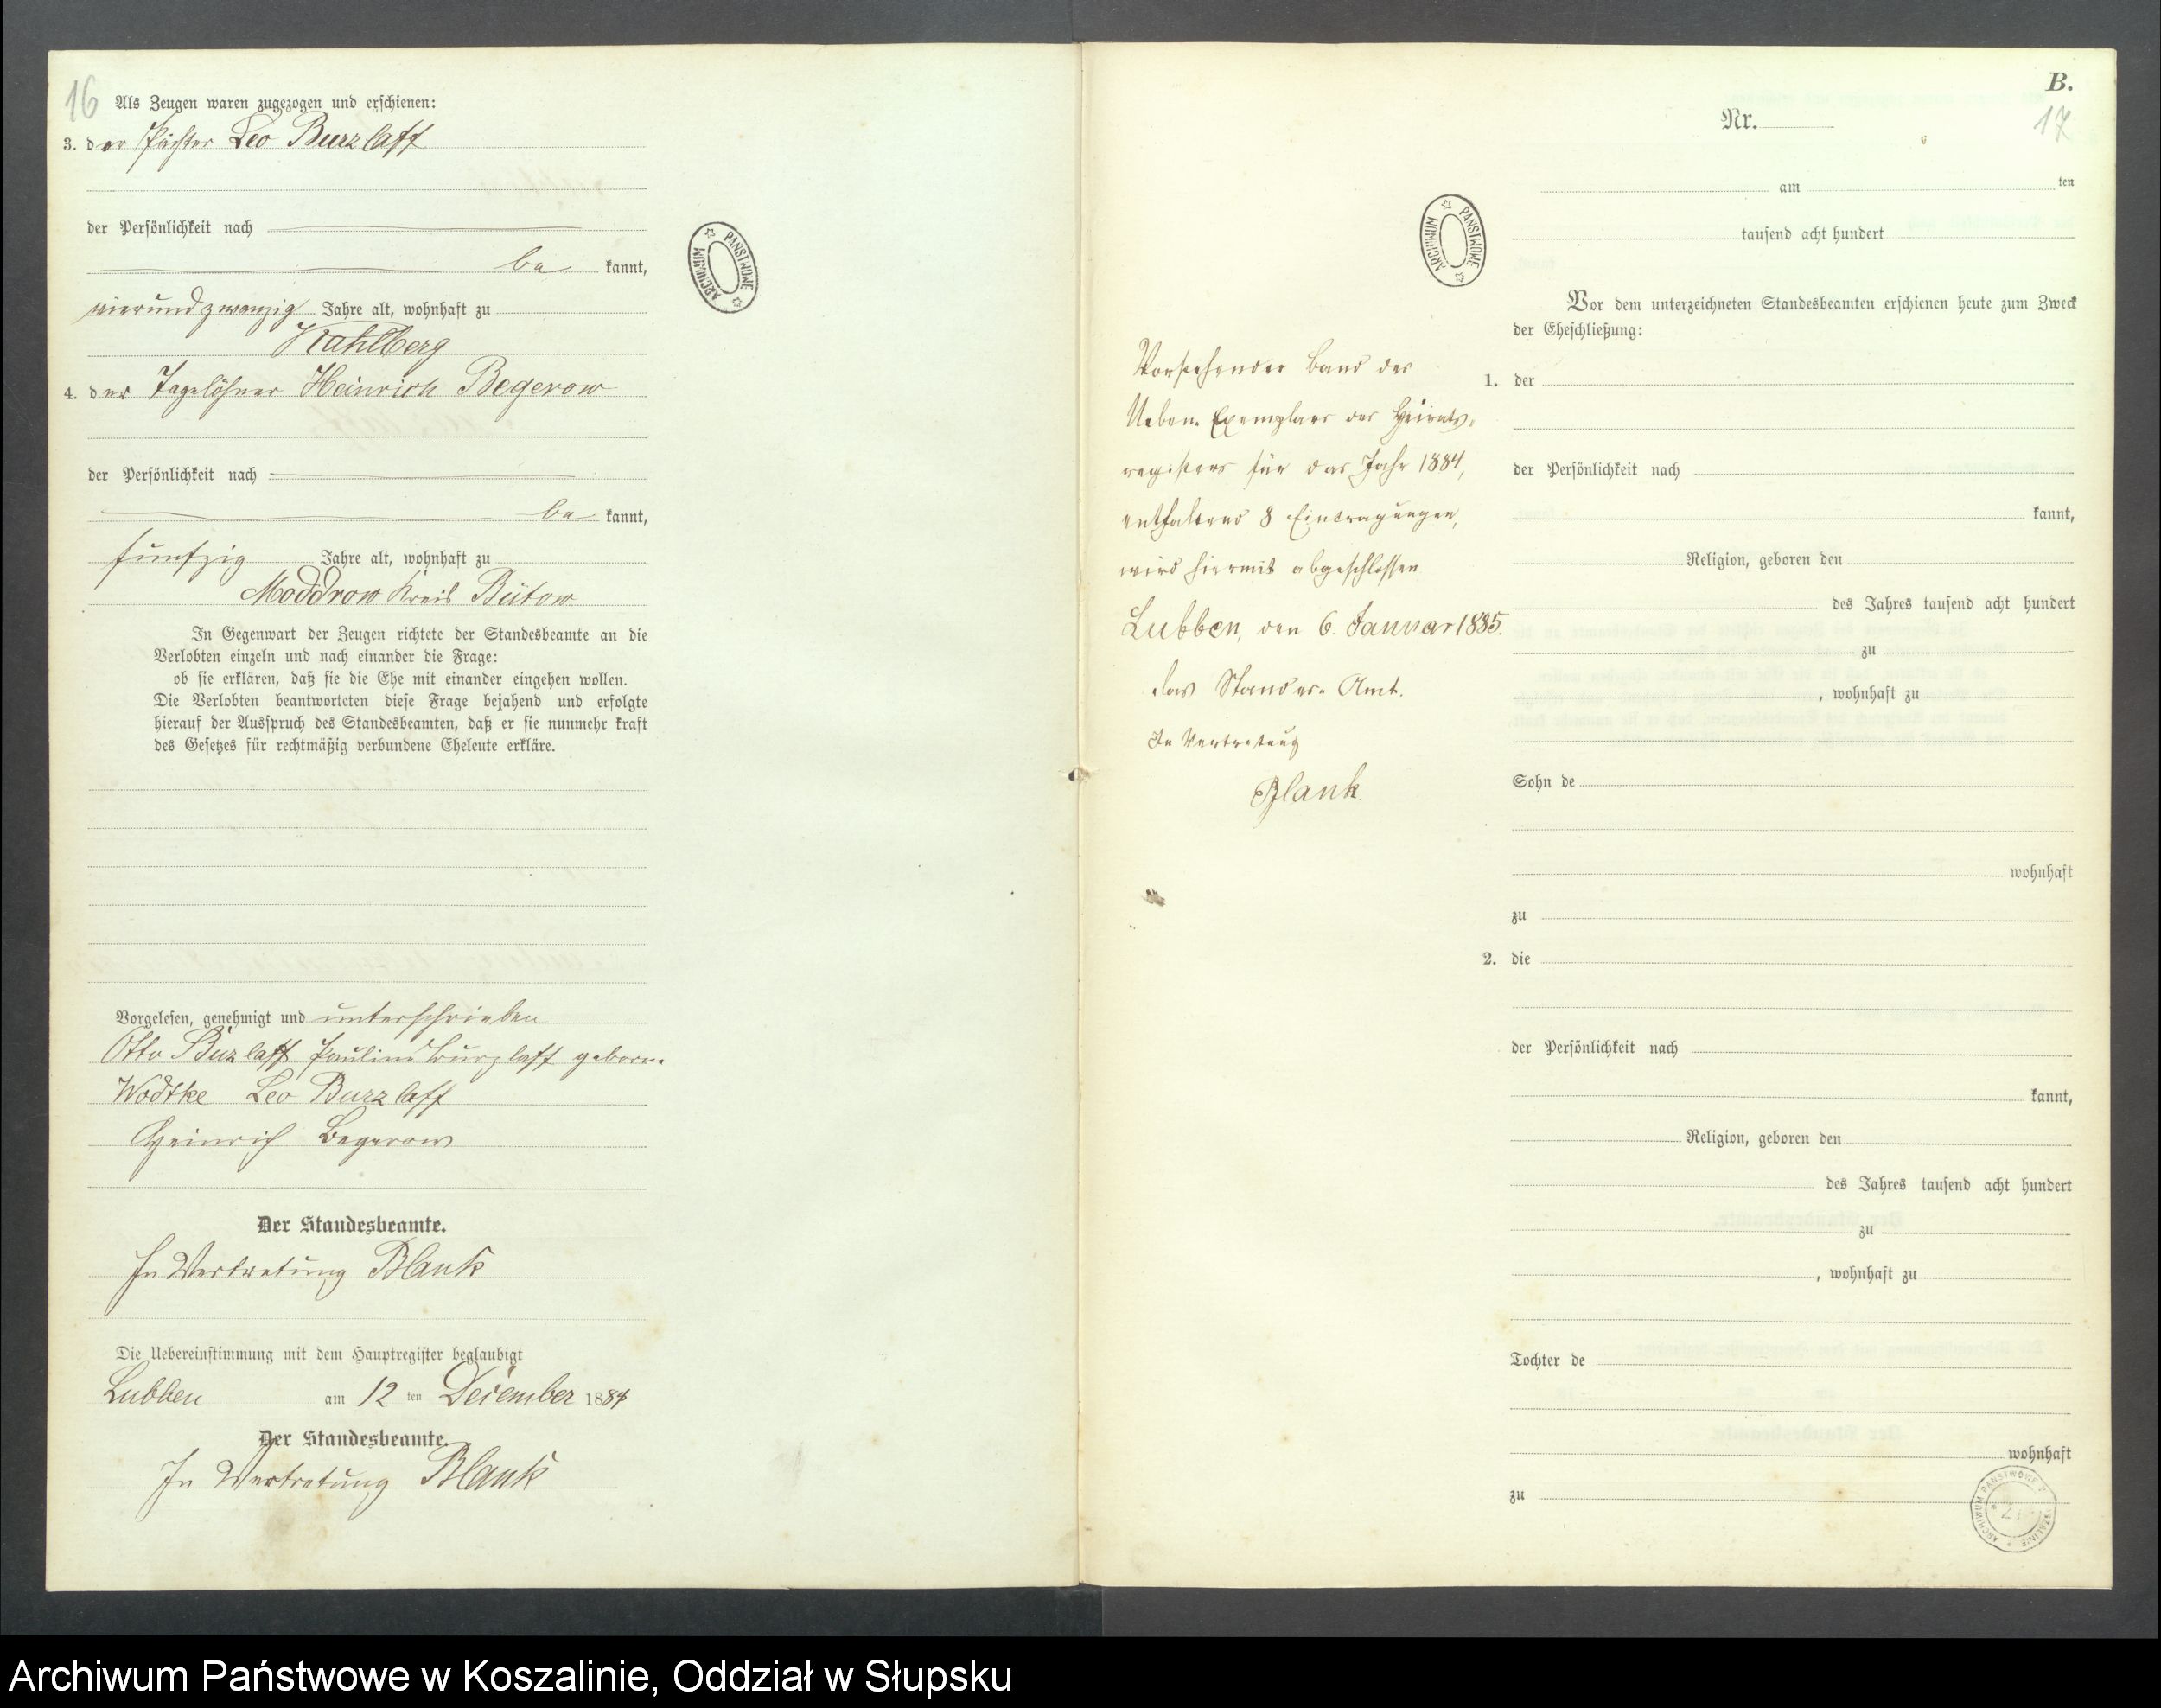 16
Als Zeugen waren zugezogen und erschienen:
3. der Pächter Leo Burzlaff
der Persönlichkeit nach
be kannt,
vierundzwanzig Jahre alt, wohnhaft zu
Kahlberg
4. der Tagelöhner Heinrich Begerow
der Persönlichkeit nach
be kannt,
fünfzig Jahre alt, wohnhaft zu
Moddrow Kreis Bütow
In Gegenwart der Zeugen richtete der Standesbeamte an die
Verlobten einzeln und nach einander die Frage:
ob sie erklären, daß sie die Ehe mit einander eingehen wollen.
Die Verlobten beantworteten diese Frage bejahend und erfolgte
hierauf der Ausspruch des Standesbeamten, daß er sie nunmehr kraft
des Gesetzes für rechtmäßig verbundene Eheleute erkläre.
Vorgelesen, genehmigt und unterschrieben
Otto Buzlaff Pauline Burzlaff geborne
Wodtke Leo Burzlaff
Heinrich Begerow
Der Standesbeamte.
In Vertretung Blank
Die Uebereinstimmung mit dem Hauptregister beglaubigt
Lubben am 12 ten December 1884
Der Standesbeamte.
In Vertretung Blank
ARCHIWUM PAŃSTWOWE
B.
17
Nr.
am ten
tausend acht hundert
Vor dem unterzeichneten Standesbeamten erschienen heute zum Zweck
der Eheschließung:
1. der
der Persönlichkeit nach
kannt,
Religion, geboren den
des Jahres tausend acht hundert
zu
, wohnhaft zu
Sohn de
wohnhaft
zu
2. die
der Persönlichkeit nach
kannt,
Religion, geboren den
des Jahres tausend acht hundert
zu
, wohnhaft zu
Tochter de
wohnhaft
zu
ARCHIWUM PAŃSTWOWE
Vorstehender Band des
Neben-Exemplars des Heirats-
registers für das Jahr 1884,
enthaltend 8 Eintragungen,
wird hiermit abgeschlossen
Lubben, den 6. Januar 1885.
das Standes-Amt.
In Vertretung
Blank.
ARCHIWUM PAŃSTWOWE
Archiwum Państwowe w Koszalinie, Oddział w Słupsku